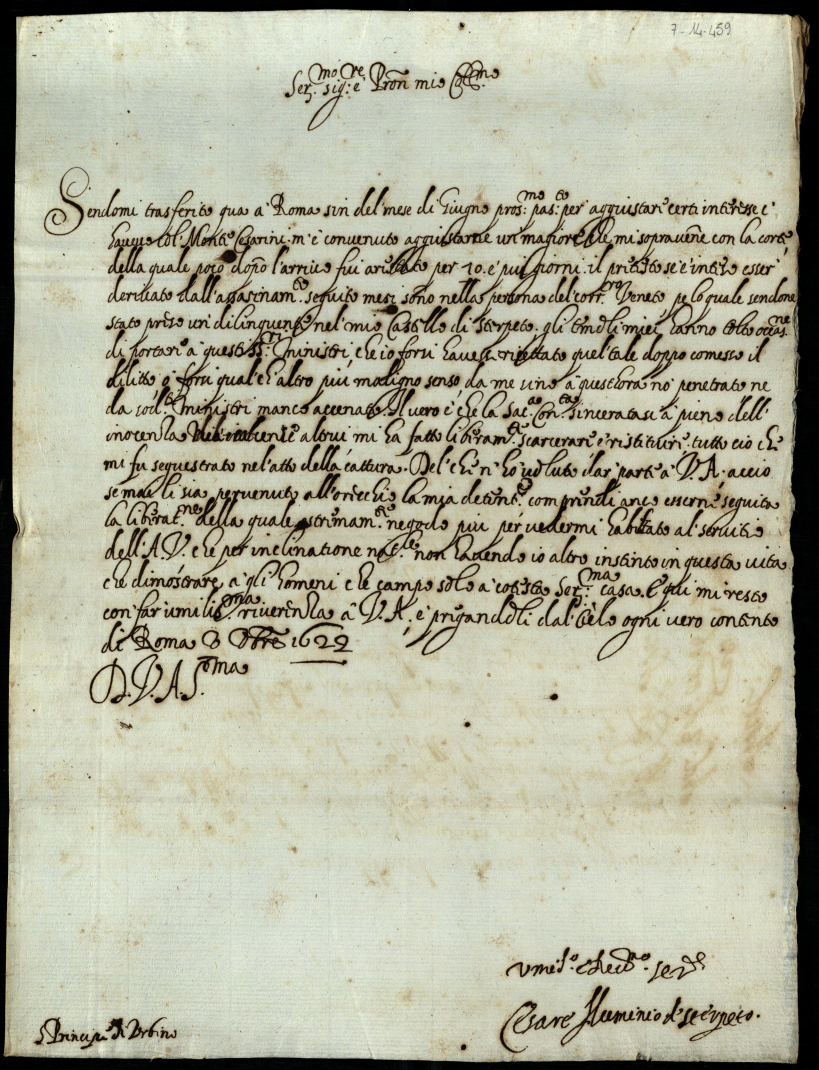 7-14-459
Ser.mo sig.re e Pron mio Coll.mo
Sendomi trasferito qua à Roma sin del mese di Giugno pros.mo pas.to per aggiustare certi interesse è
havevo col Monte Cesarini m'è convenuto aggiustarne un magiore che mi sopravene con la corte
della quale poco dopo l'arrivo fui arrestato per 20. e più giorni. il pretesto se è inteso esser
derivato dall'assasinam.to seguito mesi sono nella persona del corr.ro Veneto, pe lo quale sendone
stato preso un dilinquente nel mio Castello di Sterpeto. gli emoli miei hanno tolto occas.ne
di portare à questi SS.ri Ministri che io forsi havessi ricettato quel tale doppo comesso il
dilitto ò forsi qualch'altro più maligno senso da me sino à quest'hora no' penetrato ne
da cod.ti Ministri manco accenato. Il vero è che la Sac. Con.ta sinceratasi à pieno dell'
inocenza altrui mi ha fatto liberam.te scarcerare e ristituire tutto ciò che
mi fu sequestrato nel'atto della cattura. Del che n'ho voluto dar parte à V.A. acciò
se mai li sia pervenuto all'orecchie la mia detent.e comprendi anco esserne seguita
la liberat.ne della quale estremam.te negodo più per vedermi habilitato al servitio
dell'A.V. che per inclinatione non havendo io altro instinto in questa vita
che dimostrare à gli homeni che campo solo à cotesta Ser.ma casa. E qui mi resto
con far umiliss.ma riverenza à V.A. e prigandoli dal Cielo ogni vero contento
di Roma 8 Obre 1622
D.V.A.S.ma
Umiliss.o e Devot.mo ser.re
Cesare Illuminio de Sterpeto.
S. Principe di Urbino